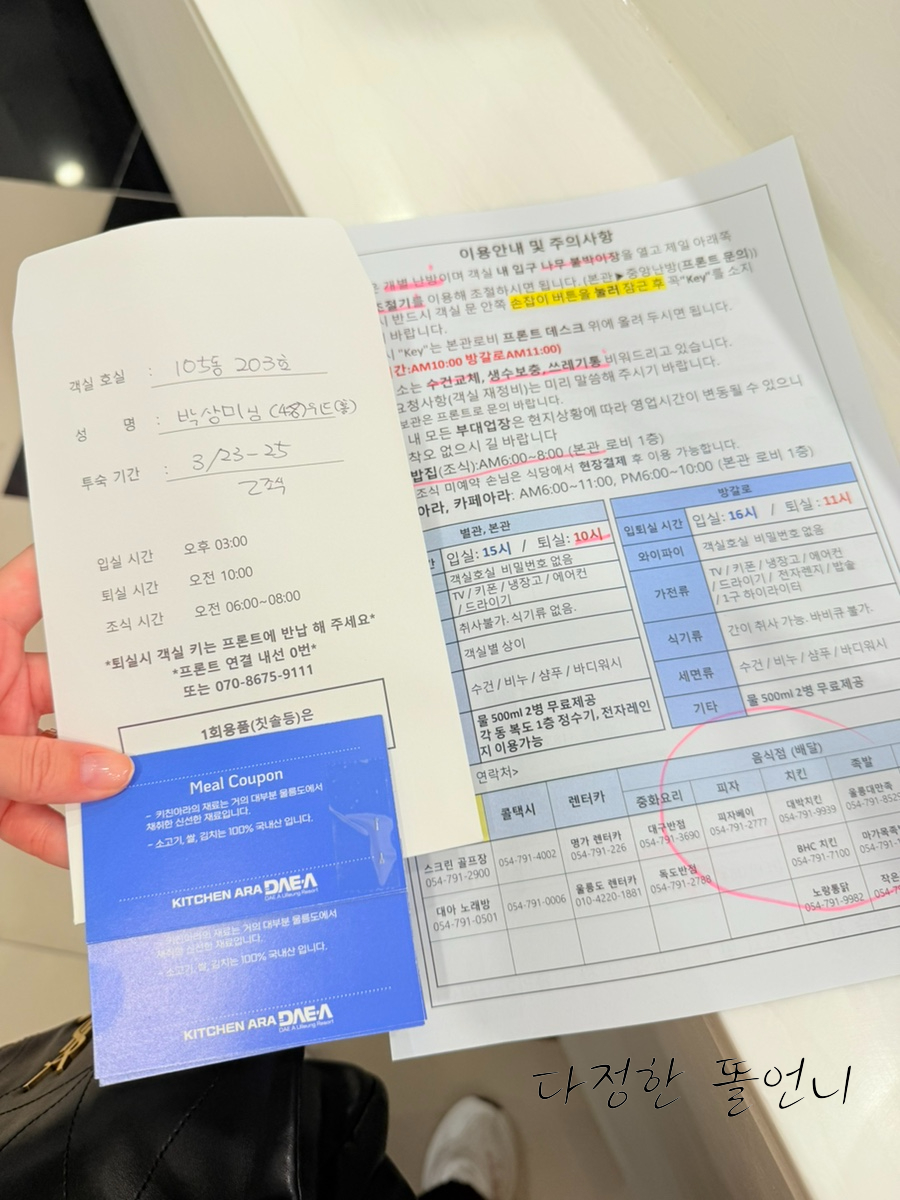 객실 호실 : 105동 203호
성 명 : 박상미님
투숙 기간 : 3/23-25
2조식
입실 시간 오후 03:00
퇴실 시간 오전 10:00
조식 시간 오전 06:00~08:00
*퇴실시 객실 키는 프론트에 반납 해 주세요*
*프론트 연결 내선 0번*
또는 070-8675-9111
1회용품(칫솔등)은
Meal Coupon
- 키친아라의 재료는 거의 대부분 울릉도에서
채취한 신선한 재료입니다.
- 소고기, 쌀, 김치는 100% 국내산 입니다.
KITCHEN ARA DAE-A
DAE A Ulleung Resort
- 키친아라의 재료는 거의 대부분 울릉도에서
채취한 신선한 재료입니다.
소고기, 쌀, 김치는 100% 국내산 입니다.
KITCHEN ARA DAE-A
DAE A Ulleung Resort
이용안내 및 주의사항
개별 난방이며 객실 내 입구 나무 붙박이장을 열고 제일 아래쪽
조절기를 이용해 조절하시면 됩니다. (본관▶중앙난방(프론트 문의))
시 반드시 객실 문 안쪽 손잡이 버튼을 눌러 잠근 후 꼭"Key"를 소지
바랍니다.
시 "Key"는 본관로비 프론트 데스크 위에 올려 두시면 됩니다.
간:AM10:00 방갈로AM11:00)
소는 수건교체, 생수보충, 쓰레기통 비워드리고 있습니다.
요청사항(객실 재정비)는 미리 말씀해 주시기 바랍니다.
보관은 프론트로 문의 바랍니다.
내 모든 부대업장은 현지상황에 따라 영업시간이 변동될 수 있으니
착오 없으시길 바랍니다
밥집(조식):AM6:00~8:00 (본관 로비 1층)
조식 미예약 손님은 식당에서 현장결제 후 이용 가능합니다.
아라, 카페아라: AM6:00~11:00, PM6:00~10:00 (본관 로비 1층)
별관, 본관
입실: 15시 / 퇴실: 10시
객실호실 비밀번호 없음
TV / 키폰 / 냉장고 / 에어컨
/ 드라이기
취사불가. 식기류 없음.
객실별 상이
수건 / 비누 / 샴푸 / 바디워시
물 500ml 2병 무료제공
각 동 복도 1층 정수기, 전자레인
지 이용가능
방갈로
입퇴실 시간 입실: 16시 / 퇴실: 11시
와이파이 객실호실 비밀번호 없음
가전류 TV / 키폰 / 냉장고 / 에어컨
/ 드라이기 / 전자렌지 / 밥솥
/ 1구 하이라이터
식기류 간이 취사 가능. 바비큐 불가.
세면류 수건 / 비누 / 샴푸 / 바디워시
기타 물 500ml 2병 무료제공
연락처>
음식점 (배달)
콜택시 렌터카 중화요리 피자 치킨 족발
스크린 골프장 054-791-4002 명가 렌터카 대구반점 피자베이 대박치킨 울릉대만족
054-791-2900 054-791-226 054-791-3690 054-791-2777 054-791-9939 054-791-852
BHC 치킨 마가목족
054-791-7100
대아 노래방 054-791-0006 울릉도 렌터카 독도반점 노랑통닭 작은
054-791-0501 010-4220-1881 054-791-2788 054-791-9982
다정한 똘언니